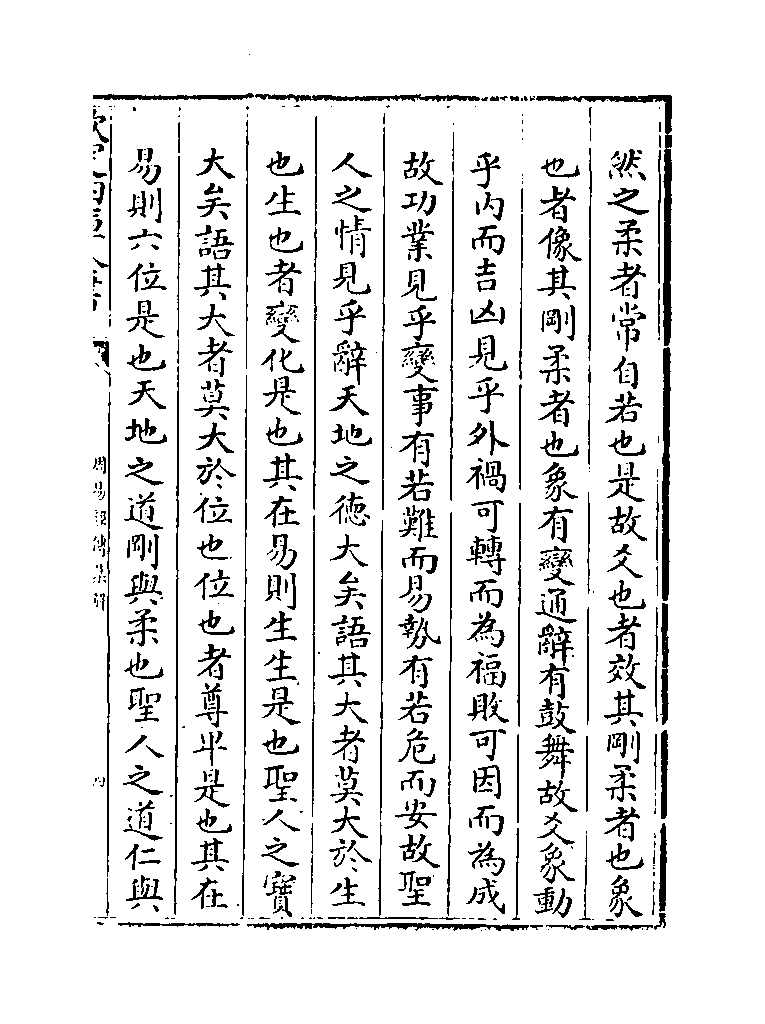 然之柔者常自若也是故爻也者效其剛柔者也象
也者像其剛柔者也象有變通辭有鼓舞故爻象動
乎内而吉凶見乎外禍可轉而為福敗可因而為成
故功業見乎變事有若難而易勢有若危而安故聖
人之情見乎辭天地之德大矣語其大者莫大於生
也生也者變化是也其在易則生生是也聖人之寶
大矣語其大者莫大於位也位也者尊卑是也其在
易則六位是也天地之道剛與柔也聖人之道仁與